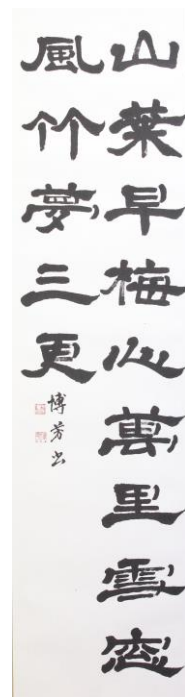 山葉早梅心萬里雪窓
風竹夢三更
博芳書